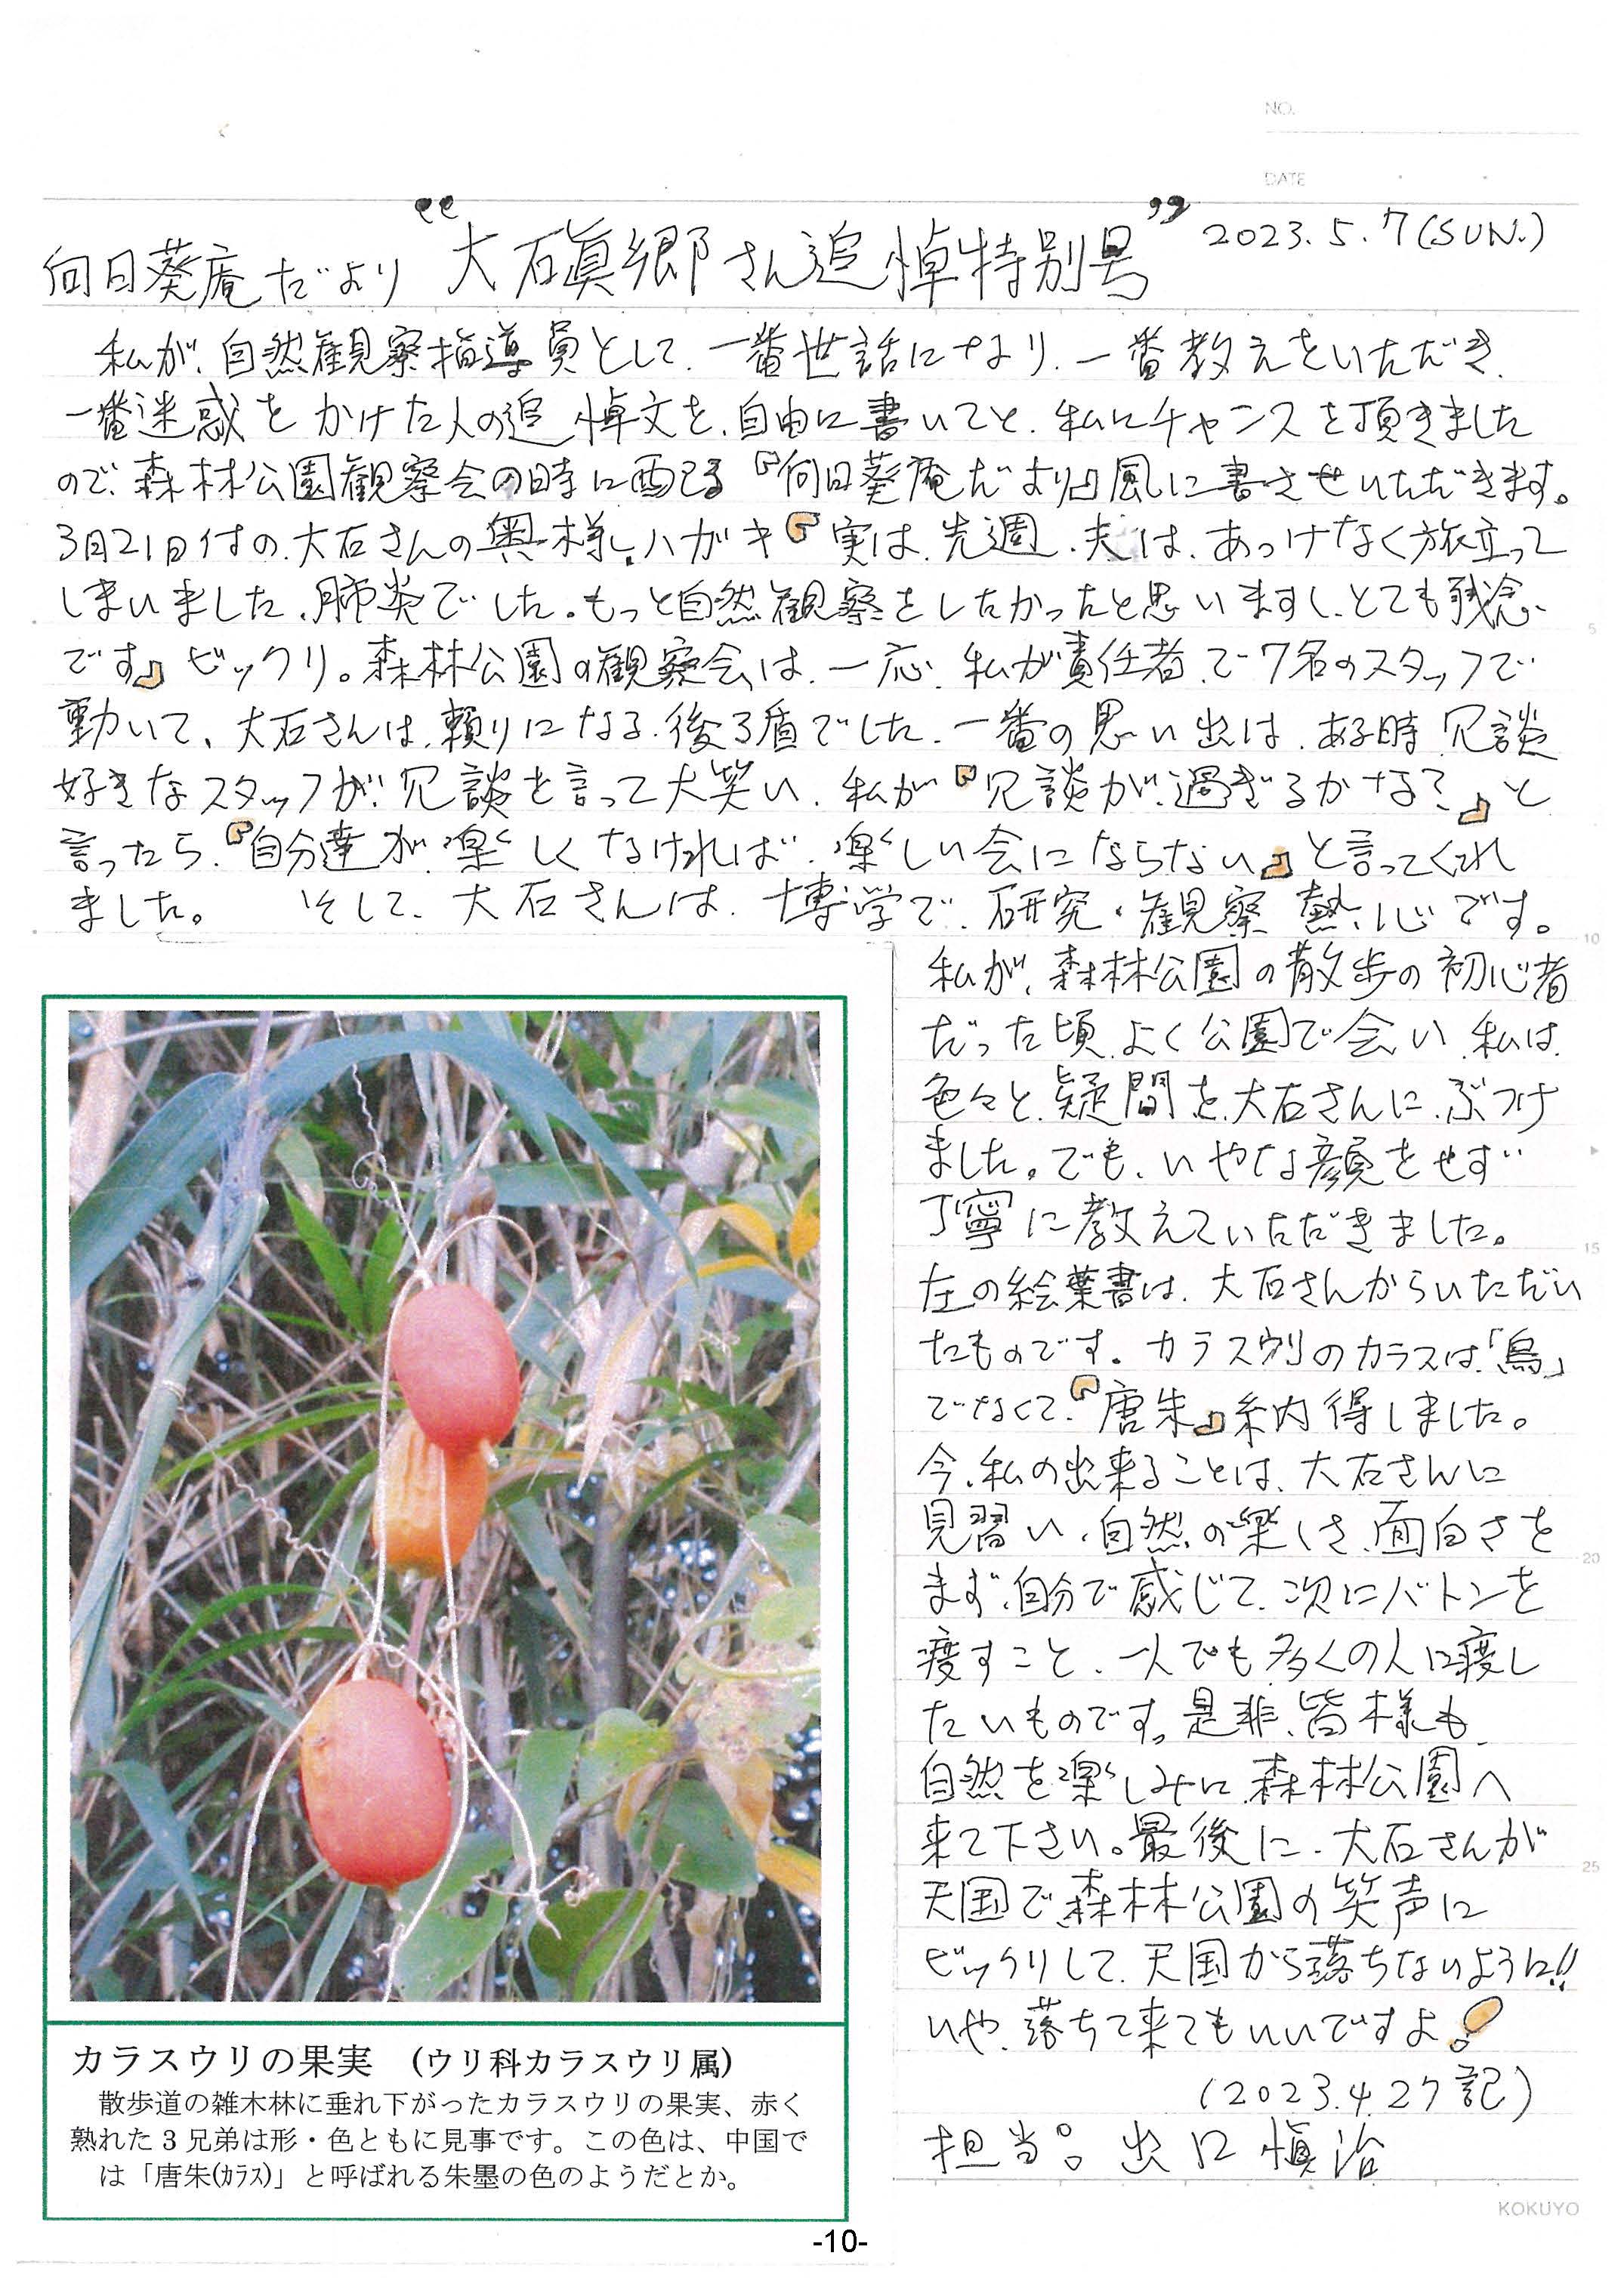 NO.
DATE
向日葵庵だより “大石眞郷さん追悼特別号” 2023.5.7(SUN.)
私が、自然観察指導員として、一番世話になり、一番教えをいただき、
一番迷惑をかけた人の追悼文を、自由に書いてと、私にチャンスを頂きました
ので、森林公園観察会の時に配る『向日葵庵だより』風に書させいただきます。
3月21日付の、大石さんの奥様、ハガキ『実は、先週、夫は、あっけなく旅立って
しまいました、肺炎でした。もっと自然観察をしたかったと思いますし、とても残念
です』ビックリ。森林公園の観察会は、一応、私が責任者、で7名のスタッフで
動いて、大石さんは、頼りになる、後ろ盾でした、一番の思い出は、ある時、冗談
好きなスタッフが、冗談を言って大笑い、私が『冗談が過ぎるかな?』と
言ったら、『自分達が、楽しくなければ、楽しい会にならない』と言ってくれ
ました。 そして、大石さんは、博学で、研究・観察熱心です。
私が、森林公園の散歩の初心者
だった頃、よく公園で会い、私は、
色々と、疑問を、大石さんに、ぶつけ
ました。でも、いやな顔をせず
丁寧に教えていただきました。
左の絵葉書は、大石さんからいただい
たものです。カラス別のカラスは、「鳥」
でなくて、『唐朱』納得しました。
今、私の出来ることは、大石さんに
見習い、自然の楽しさ、面白さを
まず、自分で感じて、次にバトンを
渡すこと、一人でも多くの人に渡し
たいものです。是非、皆様も、
自然を楽しみに、森林公園へ
来て下さい。最後に、大石さんが
天国で森林公園の笑声に
ビックリして、天国から落ちないように!!
いや、落ちて来てもいいですよ!
(2023.4.27記)
担当: 出口慎治
カラスウリの果実 (ウリ科カラスウリ属)
散歩道の雑木林に垂れ下がったカラスウリの果実、赤く
熟れた3兄弟は形・色ともに見事です。この色は、中国で
は「唐朱(ｶﾗｽ)」と呼ばれる朱墨の色のようだとか。
5
10
15
20
25
KOKUYO
-10-